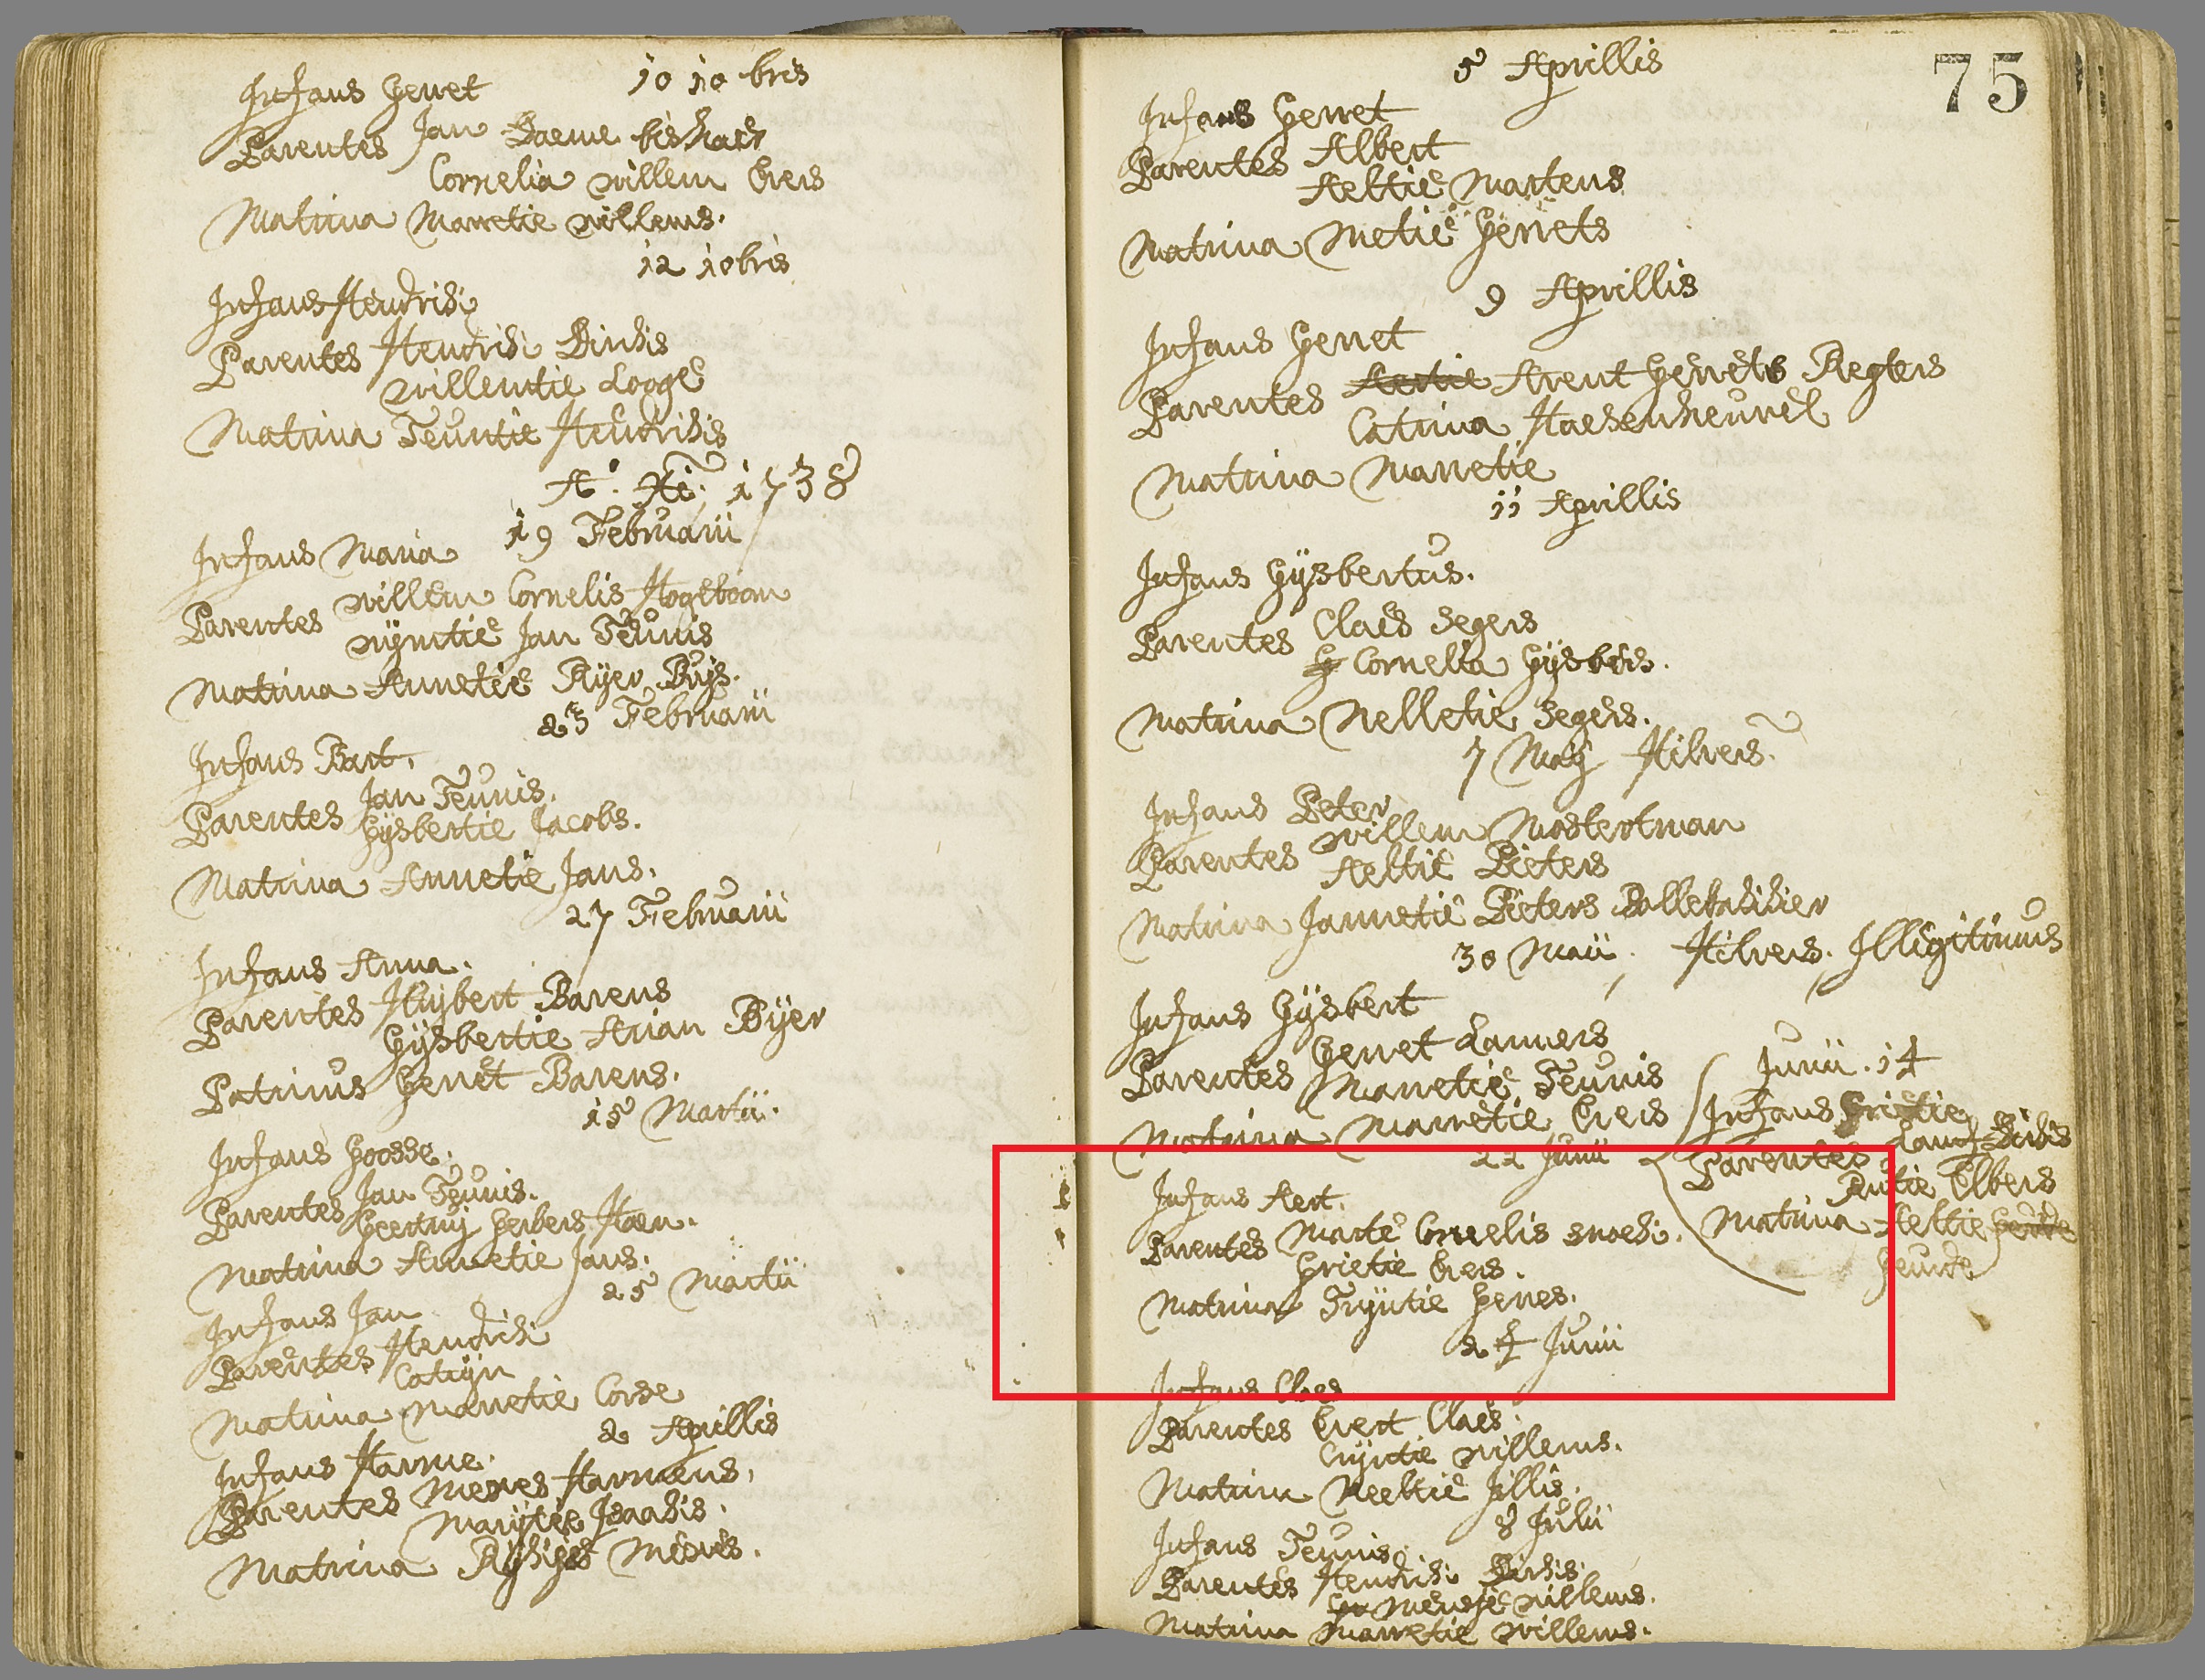 10 10 bris
Infans Gerret
Parentes Jan Daeme
Cornelia willem Evers
Matrina Marretie willems.
12 10bris
Infans Hendrik
Parentes Hendrik Dirkis
willemtie Looge
Matrina Teuntie Hendrikis
A. 1738
19 Februarii
Infans Maria
Parentes willem Cornelis Hogeboom
wijmtie Jan Teunis
Matrina Annetie Rÿer Buÿs.
23 Februarii
Infans Bart.
Parentes Jan Teunis.
Gijsbertie Jacobs.
Matrina Annetie Jans.
27 Februarii
Infans Anna.
Parentes Huijbert Barens
Gÿsbertie Arian Bÿer
Patrinus Gerret Barens.
15 Martii.
Infans Goosse.
Parentes Jan Teunis.
Geertruij Gerbers Haen.
Matrina Annetie Jans.
25 Martii
Infans Jan
Parentes Hendrik
Catrijn
Matrina Marretie Corse
2 Aprillis
Infans Harme.
Parentes Meeues Harmens.
Marijtie Isaakis.
Matrina Meeues.
75
5 Aprillis
Infans Gerret
Parentes Albert
Aeltie Martens
Matrina Metie Gerrets
9 Aprillis
Infans Gerret
Parentes Arent Gerrets Regters
Catrina Haesenheuvel
Matrina Marretie
11 Aprillis
Infans Gÿsbertus.
Parentes Claes Segers
Cornelia Gÿsbers.
Matrina Nelletie Segers.
7 Maÿ Hilvers.
Infans Peter
Parentes willem Mostertman
Aeltie Pieters
Matrina Jannetie Pieters Pollebakkier
30 Maii. Hilvers. Illegitimus
Infans Gÿsbert
Parentes Gerret Lamers
Marretie Teunis
Matrina Marretie Evers
Junii. 14
Infans Grietie
Parentes Lamb Dirkis
Rutie Elbers
Matrina Aeltie
Geurde
22 Junii
Infans Aert.
Parentes Marte Cornelis snoek.
Grietie Evers.
Matrina Trÿntie Gerres.
24 Junii
Infans Claes
Parentes Evert Claes.
Crijntie willems.
Matrina Neeltie Jillis.
8 Julii
Infans Teunis.
Parentes Hendrik Dirkis
Mensje willems.
Matrina Marretie willems.